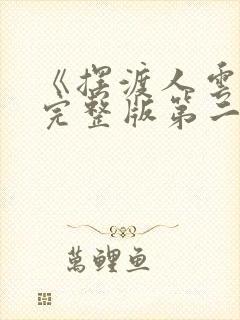 《摆渡人雲
完整版第二
萬鲤鱼